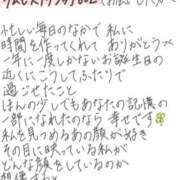 忙しい毎日のなかで 私に
時間を作ってくれて ありがとうっ
一年に一度しかないお誕生日の
近くにこうしてふたりで
過ごせたこと
ほんの少しでもあなたの記憶の
一部になれたのなら 幸せです
私を見つめるあの顔が好き
その目に映っている私が
どんな顔をしているのか